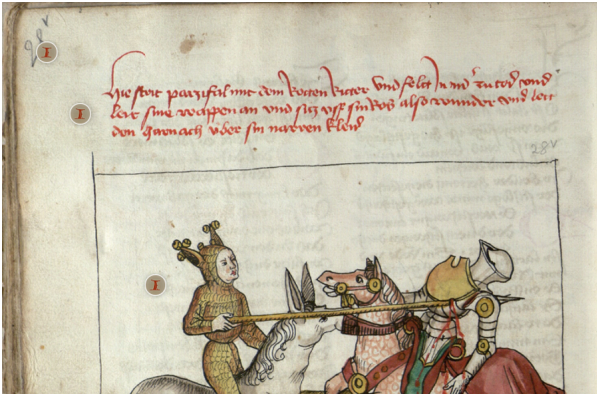 28v
I
Hie strit parzifal mit dem Rotten Ritter Vnd felt Jn nid' zu tod vnd
I
leit sine wappen an vnd sitz vff sin Ros also wunder vnd leit
den harnach über sin narren kleid
28v
I